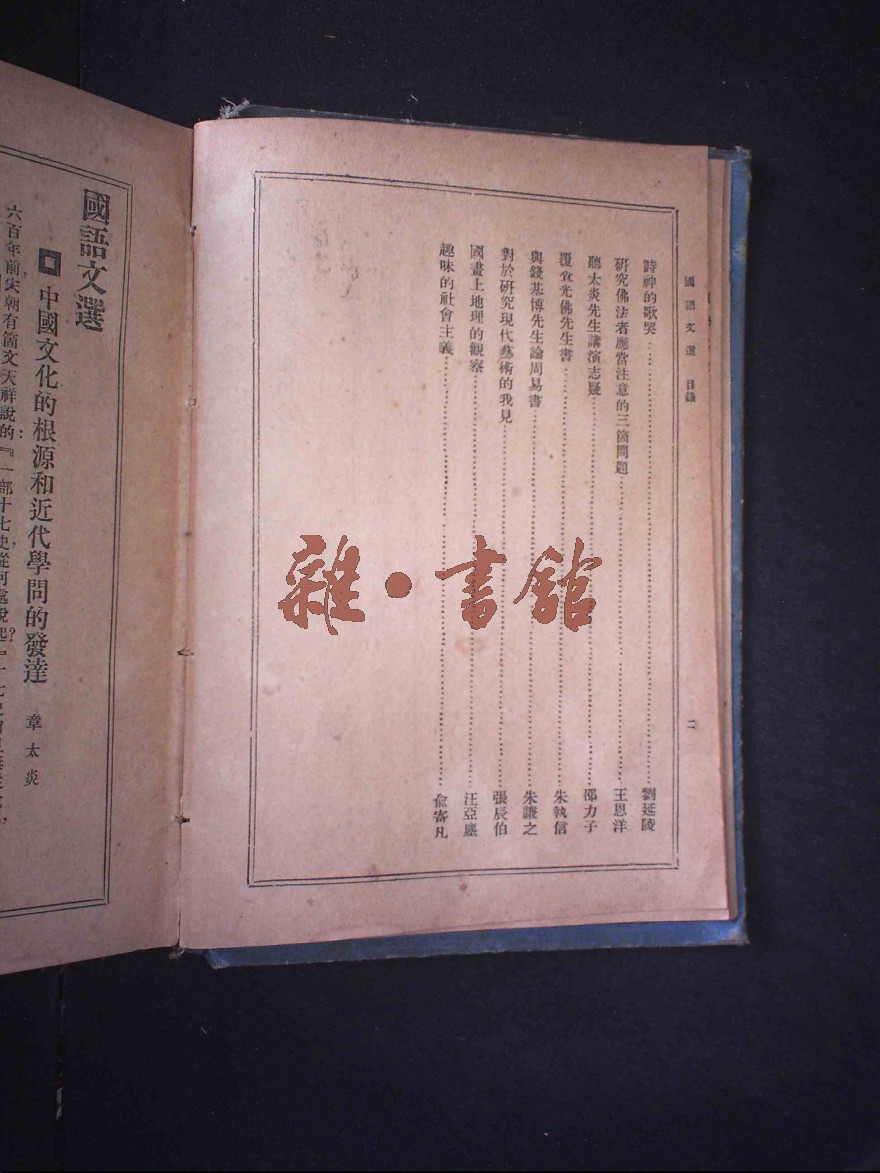 國語文選 目錄 二
詩神的歌哭……劉延陵
研究佛法者應當注意的三箇問題……王恩洋
聽太炎先生講演志疑……邵力子
覆食光佛先生書……朱執信
與錢基博先生論周易書……朱謙之
對於研究現代藝術的我見……張辰伯
國畫上地理的觀察……汪亞塵
趣味的社會主義……俞寄凡
國語文選
中國文化的根源和近代學問的發達 章太炎
六百年前，宋朝有箇文天祥說的：『一部十七史，從何處說起？
雜·書館